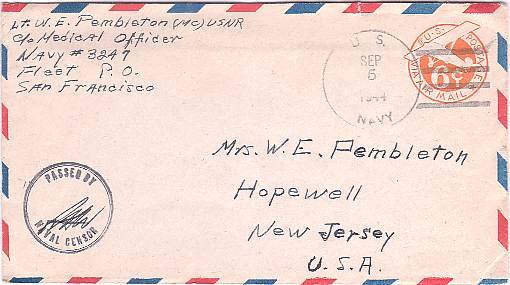 Lt. W. E. Pembleton (MC) USNR
c/o Medical Officer
Navy # 3247
Fleet P.O.
San Francisco
U. S.
SEP
5
1944
NAVY
U.S. POSTAGE
6¢
VIA AIR MAIL
Mrs. W. E. Pembleton
Hopewell
New Jersey
U.S.A.
PASSED BY
NAVAL CENSOR